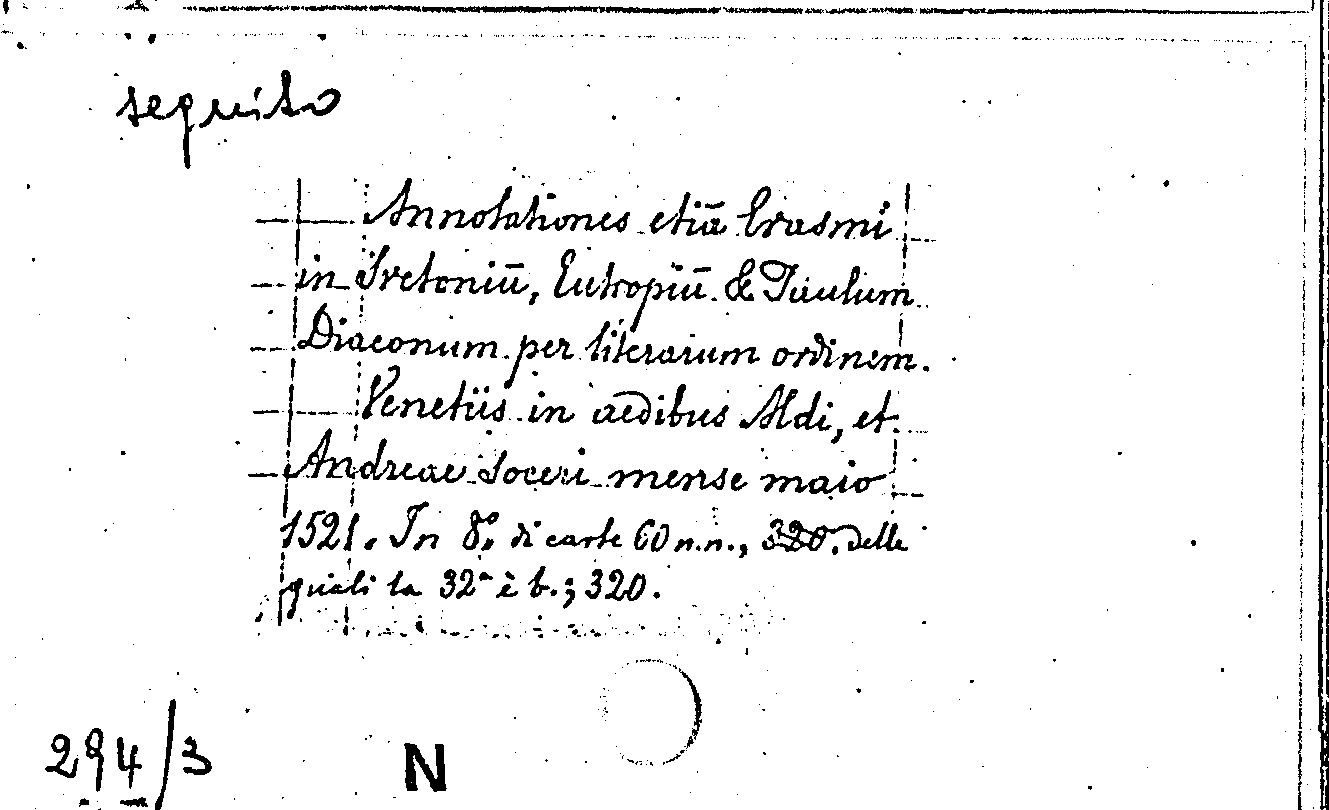 seguito
Annotationes etiā Erasmi
in Svetoniū, Eutropiū & Paulum
Diaconum per literarum ordinem.
Venetiis in aedibus Aldi, et
Andreae Soceri mense maio
1521. In 8.° di carte 60 n.n., 320. delle
quali la 32ª è b.; 320.
294/3
N